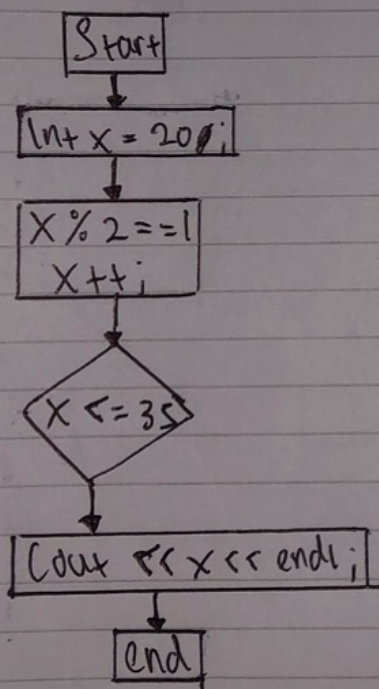 Start
Int x = 20;
X % 2 == 1
X++;
X <= 35
Cout << x << endl;
end